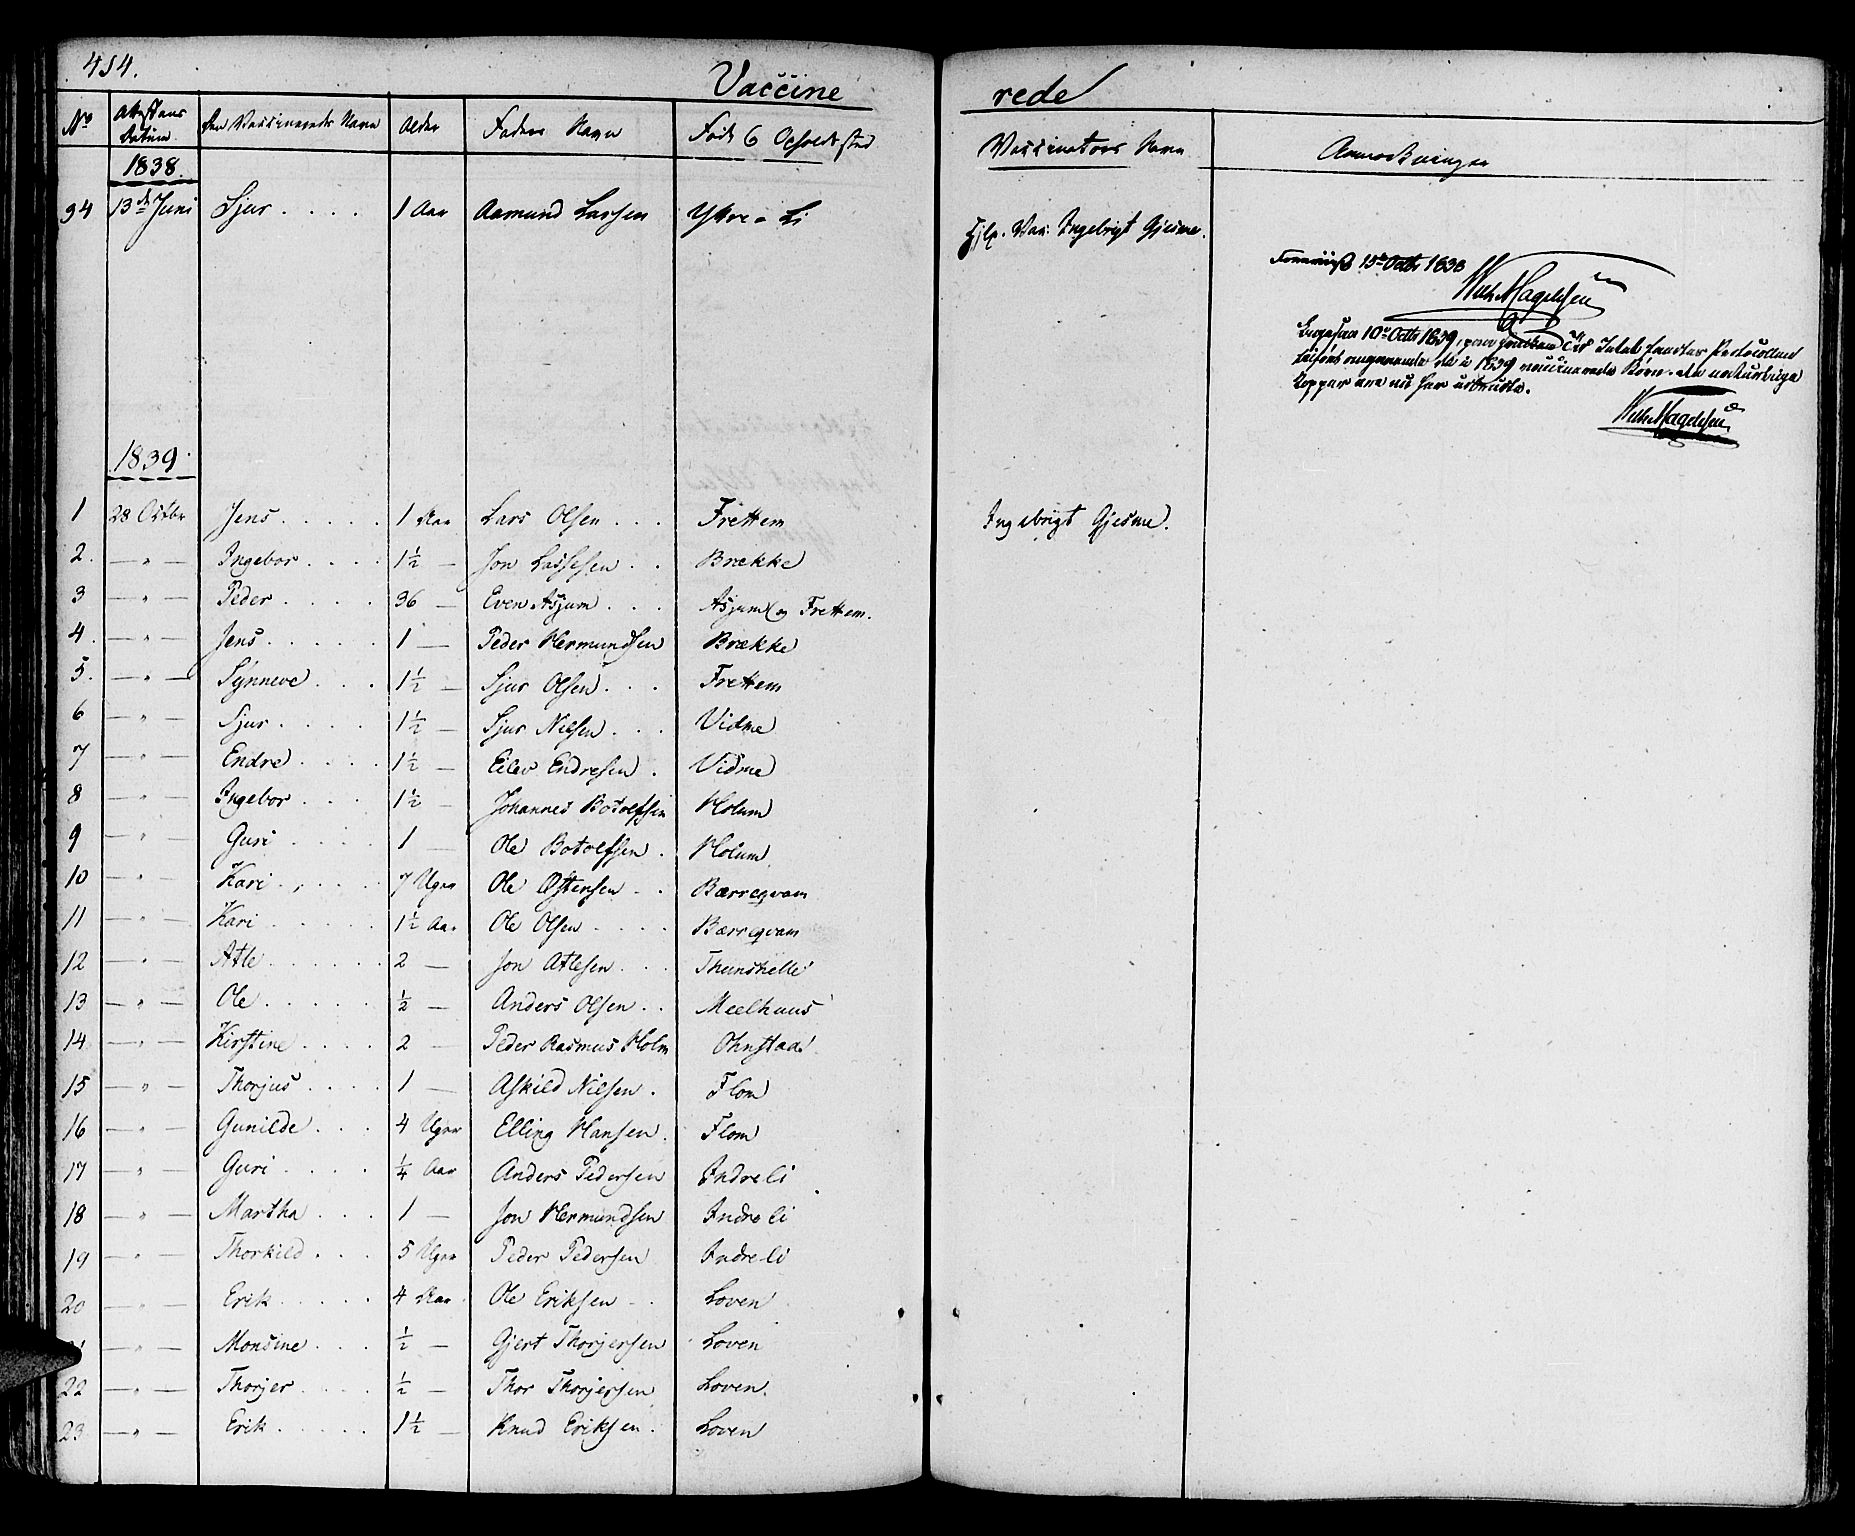 454.
Vaccinerede
No Attestens Datum Den Vaccineredes Navn Alder Faders Navn Føde & Opholdssted Vaccinators Navn Anmerkninger
1838.
94 13de Juni Sjur . . . . 1 Aar Aamund Lassen Ytre-Li Hjlp. Vac. Ingebrigt Gjesme.
15de Octbr 1838
Wilh. Magelssen
10de Octbr 1839, Protocollen
de i 1839 vaccinerede Børn. de naturlige
Kopper
Wilh. Magelssen
1839.
1 28 Octbr Jens . . . . . 1 Aar Lars Olsen . . . Frettem Ingebrigt Gjesme.
2. — " — Ingebor . . . . 1½ — Jon Lassesen . . Brække
3 — " — Peder . . . . 36 — Even Asjum . . . Asjum og Frettem.
4. — " — Jens . . . . . 1 — Peder Hermundsen Brække
5. — " — Synneve . . . 1½ — Sjur Olsen . . . Frettem
6 — " — Sjur . . . . . 1½ — Sjur Nilsen . . . Vidme
7 — " — Endre . . . . 1½ — Eilev Endresen . Vidme
8 — " — Ingebor . . . 1½ — Johannes Botolfsen Holum
9 — " — Guri . . . . 1 — Ole Botolfsen . Holum
10 — " — Kari . . . . . 7 Uger Ole Østensen . . Bærreqvam
11 — " — Kari . . . . . 1½ Aar Ole Olsen . . . . Bærreqvam
12 — " — Atle . . . . . 2 — Jon Atlesen . . . Thunshelle
13 — " — Ole . . . . . ½ — Anders Olsen . . Meelhuus
14 — " — Kirstine . . . . 2 — Peder Rasmus Holm Ohnstad
15 — " — Thorjus . . . . 1 — Askild Nilsen . Flom
16 — " — Gunilde . . . 4 Uger Elling Hansen . Flom
17 — " — Guri . . . . ¼ Aar Anders Pedersen Indreli
18 — " — Martha . . . 1 — Jon Hermundsen Indreli
19 — " — Thorkild . . . 5 Uger Peder Pedersen Indreli
20 — " — Erik . . . . . 4 Aar Ole Eriksen . . Loven
— " — Monsine . . . ½ — Gjert Thorjersen Loven
22 — " — Thorjer . . . . ½ — Thor Thorjersen Loven.
23 — " — Erik . . . . . 1½ — Knud Eriksen . Loven